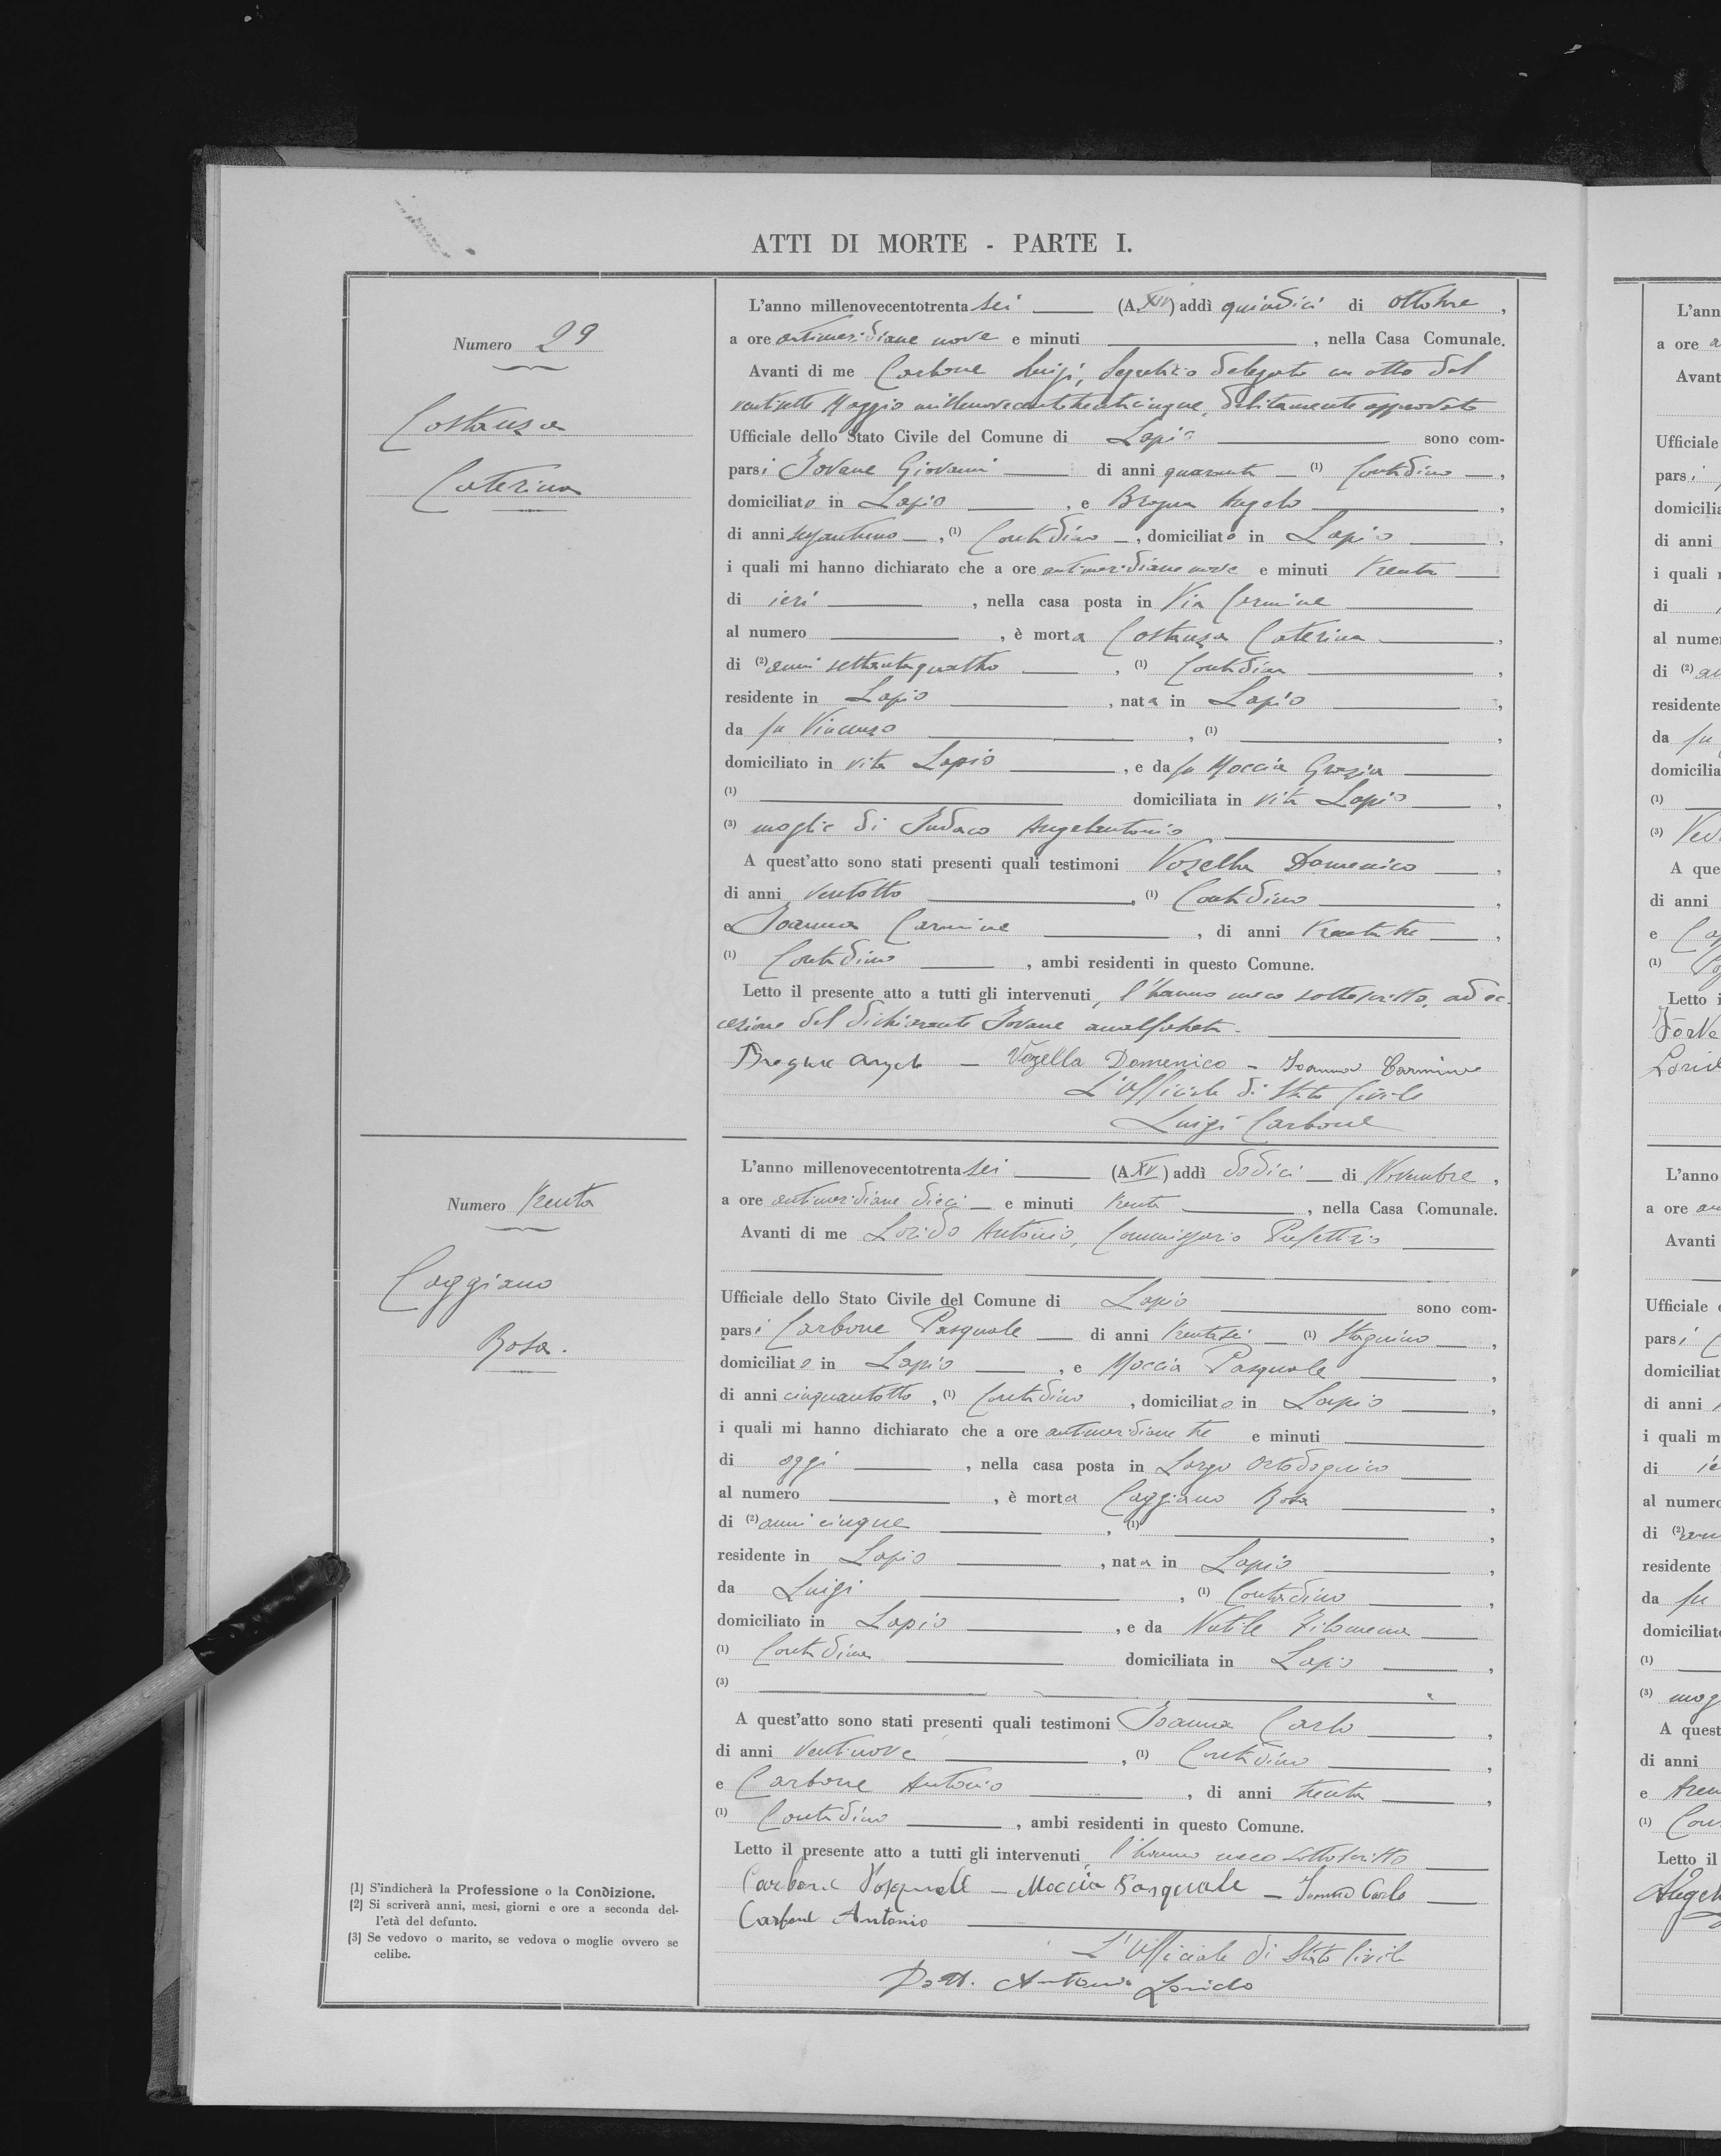 ATTI DI MORTE - PARTE I.
Numero 29
Costanza
Caterina
L'anno millenovecentotrenta sei (A. XIV) addì quindici di ottobre,
a ore antimeridiane nove e minuti , nella Casa Comunale.
Avanti di me Carbone Luigi, Segretario delegato con atto del
ventisette Maggio millenovecentotrentacinque, debitamente approvato
Ufficiale dello Stato Civile del Comune di Lapio sono com-
parsi Iovane Giovanni di anni quaranta (1) Contadino,
domiciliato in Lapio, e Brogna Angelo,
di anni sessantuno, (1) Contadino, domiciliato in Lapio,
i quali mi hanno dichiarato che a ore antimeridiane nove e minuti trenta
di ieri, nella casa posta in Via Carmine
al numero , è morta Costanza Caterina,
di (2) anni settantaquattro, (1) Contadina,
residente in Lapio, nata in Lapio,
da fu Vincenzo, (1) ,
domiciliato in vita Lapio, e da fu Moccia Grazia
(1) domiciliata in vita Lapio,
(3) moglie di Indaco Angelantonio
A quest'atto sono stati presenti quali testimoni Vozella Domenico,
di anni ventotto, (1) Contadino,
e Ioanna Carmine, di anni trentatre,
(1) Contadino, ambi residenti in questo Comune.
Letto il presente atto a tutti gli intervenuti, l'hanno meco sottoscritto, ad ec-
cezione del dichiarante Iovane analfabeta.
Brogna Angelo - Vozella Domenico - Ioanna Carmine
L'Ufficiale di Stato Civile
Luigi Carbone
Numero trenta
Caggiano
Rosa.
L'anno millenovecentotrenta sei (A. XV) addì dodici di Novembre,
a ore antimeridiane dieci e minuti trenta, nella Casa Comunale.
Avanti di me Lorido Antonio, Commissario Prefettizio
Ufficiale dello Stato Civile del Comune di Lapio sono com-
parsi Carbone Pasquale di anni trentasei (1) Stagnino,
domiciliato in Lapio, e Moccia Pasquale,
di anni cinquantotto, (1) Contadino, domiciliato in Lapio,
i quali mi hanno dichiarato che a ore antimeridiane tre e minuti
di oggi, nella casa posta in Largo
al numero , è morta Caggiano Rosa,
di (2) anni cinque, (1) ,
residente in Lapio, nata in Lapio,
da Luigi, (1) Contadino,
domiciliato in Lapio, e da Nutile Filomena
(1) Contadina domiciliata in Lapio,
(3)
A quest'atto sono stati presenti quali testimoni Ioanna Carlo,
di anni ventinove, (1) Contadino,
e Carbone Antonio, di anni trenta,
(1) Contadino, ambi residenti in questo Comune.
Letto il presente atto a tutti gli intervenuti, l'hanno meco sottoscritto
Carbone Pasquale - Moccia Pasquale - Ioanna Carlo
Carbone Antonio
L'Ufficiale di Stato Civile
Dott. Antonio Lorido
(1) S'indicherà la Professione o la Condizione.
(2) Si scriverà anni, mesi, giorni e ore a seconda del-
l'età del defunto.
(3) Se vedovo o marito, se vedova o moglie ovvero se
celibe.
L'ann
a ore
Avant
Ufficiale
parsi
domicilia
di anni
i quali
di
al nume
di (2)
residente
da fu
domicilia
(1)
(3) Ved
A que
di anni
e
(1)
Letto i
L'anno
a ore
Avanti
Ufficiale
parsi
domiciliat
di anni
i quali m
di ie
al numero
di (2)
residente
da fu
domiciliato
(1)
(3) mog
A quest
di anni
e
(1) Con
Letto il